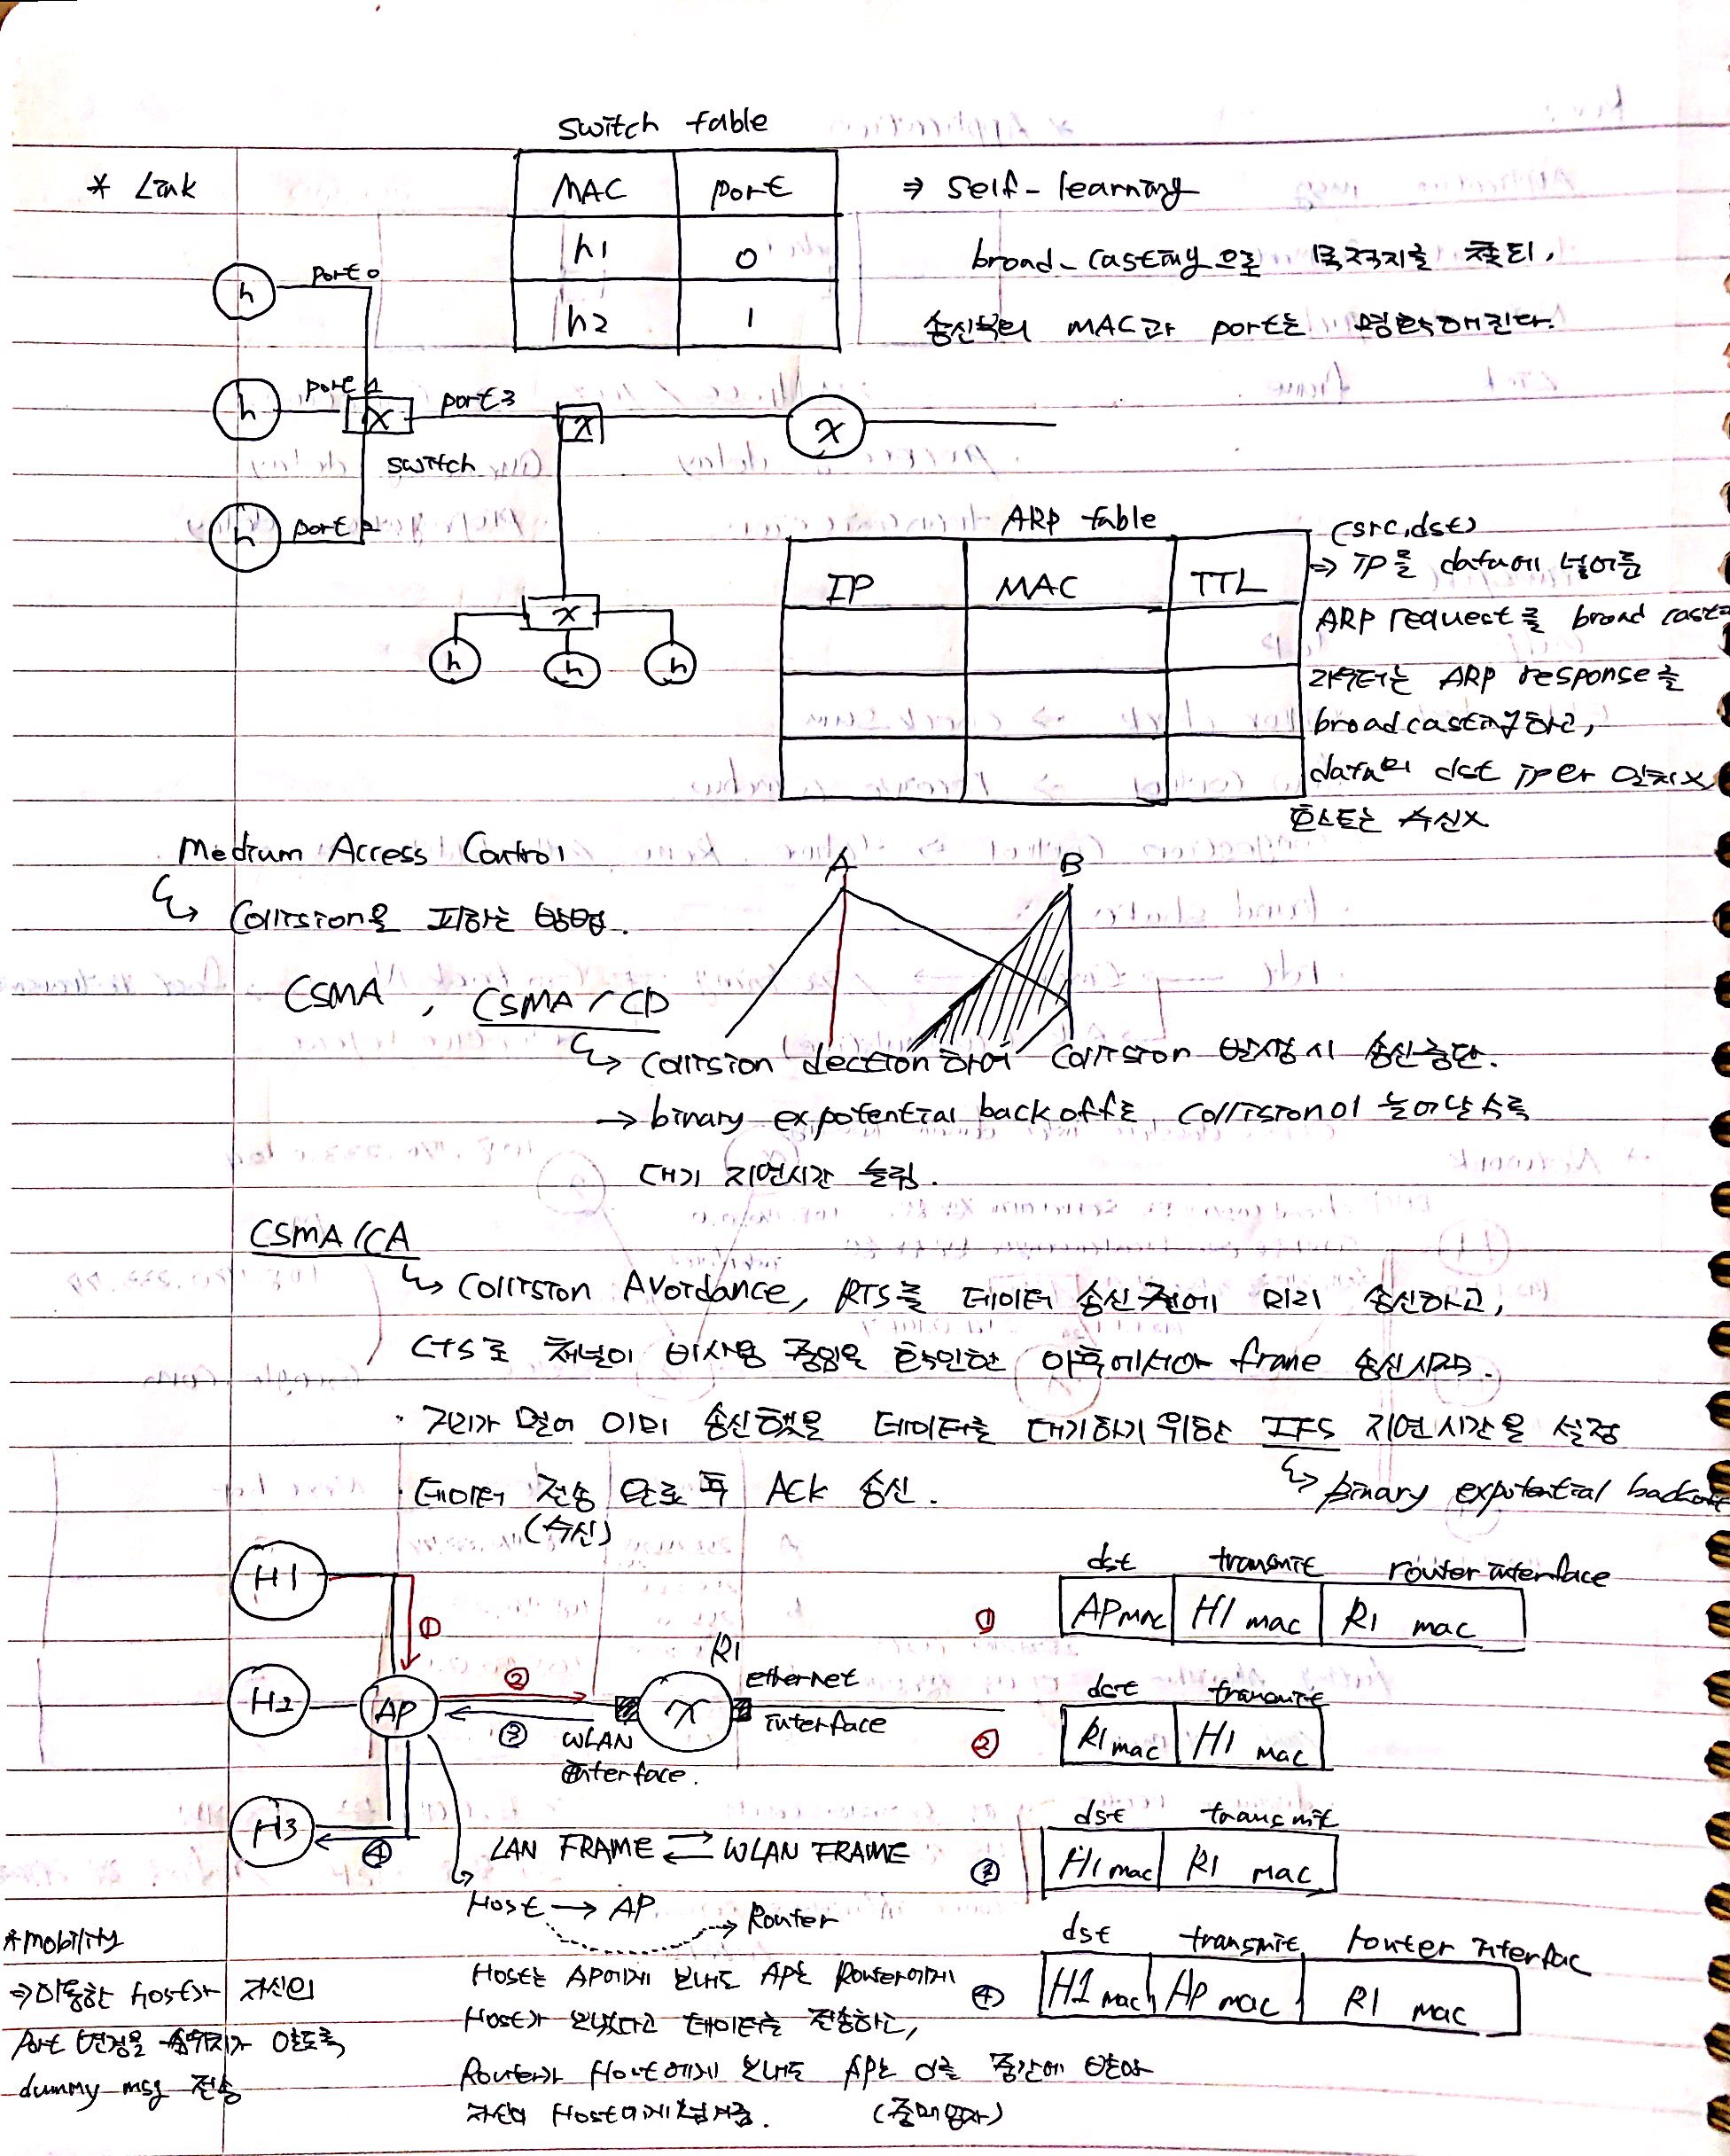 switch table
* Link
MAC port
h1 0
h2 1
⇒ self-learning
broad-casting으로 목적지를 찾되,
송신측의 MAC과 port는 명확해진다.
h port 0
h port 1 X port 3 X X
switch
h port 2
X
h h h
ARP table
IP MAC TTL
(src, dst)
⇒ IP를 data에 넣어둔
ARP request를 broad cast
라우터는 ARP response를
broadcasting하고,
data의 dst IP와 일치x
호스트는 수신x
Medium Access Control
↳ Collision을 피하는 방법.
A B
CSMA, CSMA/CD
↳ Collision dection하여 Collision 발생시 송신중단.
→ binary expotential backoff로 collision이 늘어날수록
대기 지연시간 늘림.
CSMA/CA
↳ Collision Avoidance, RTS를 데이터 송신 전에 미리 송신하고,
CTS로 채널이 비사용 중임을 확인한 이후에서야 frame 송신시작.
· 거리가 멀어 이미 송신했을 데이터를 대기하기 위한 IFS 지연시간을 설정
↳ binary expotential backoff
· 데이터 전송 완료 후 ACK 송신.
(수신)
H1
①
H2 AP ② ③
R1
X
ethernet
interface
WLAN
interface.
H3 ④
① dst transmit router interface
AP mac H1 mac R1 mac
② dst transmit
R1 mac H1 mac
③ dst transmit
H1 mac R1 mac
④ dst transmit router interfac
H1 mac Ap mac R1 mac
LAN FRAME ⇄ WLAN FRAME
Host → AP → Router
Host는 AP에게 보내도 AP는 Router에게
Host가 보냈다고 데이터를 전송하고,
Router가 Host에게 보내도 AP는 이를 중간에 받아
자신의 Host에게 넘겨줌. (중매쟁이)
*mobility
⇒이동한 host가 자신의
Port 변경을 스위치가 알도록
dummy msg 전송